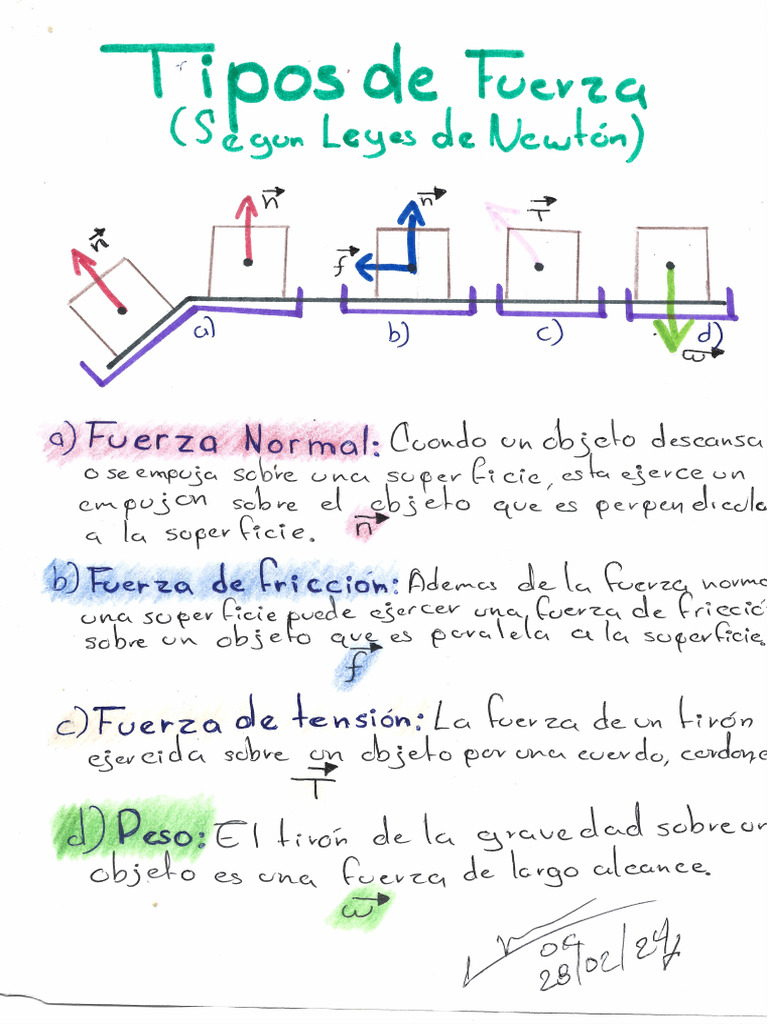 Tipos de Fuerza
(Segun Leyes de Newtón)
n n f n T
a) b) c) d)
w
a) Fuerza Normal: Cuando un objeto descansa
o se empuja sobre una superficie, esta ejerce un
empujon sobre el objeto que es perpendicula
a la superficie. n
b) Fuerza de fricción: Ademas de la fuerza norma
una superficie puede ejercer una fuerza de fricció
sobre un objeto que es paralela a la superficie.
f
c) Fuerza de tensión: La fuerza de un tirón
ejercida sobre un objeto por una cuerdo, cordone
T
d) Peso: El tirón de la gravedad sobre un
objeto es una fuerza de largo alcance.
w
28/02/24